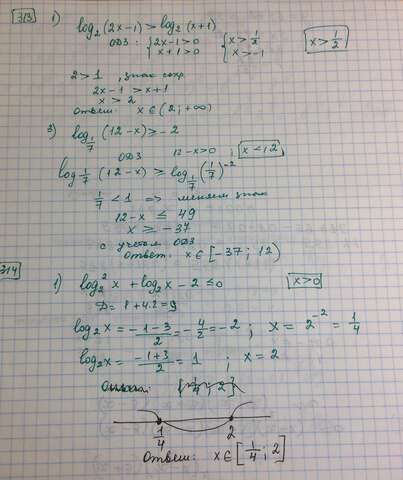 313 1) log₂(2x-1) > log₂(x+1)
ОДЗ: { 2x-1>0 { x > 1/2 x > 1/2
x+1>0 x > -1
2 > 1, знак сохр.
2x-1 > x+1
x > 2
Ответ: x ∈ (2; +∞)
3) log_{1/7} (12-x) ≥ -2
ОДЗ 12-x>0; x < 12
log_{1/7} (12-x) ≥ log_{1/7} (1/7)^{-2}
1/7 < 1 => меняем знак
12-x ≤ 49
x ≥ -37
с учетом ОДЗ
Ответ: x ∈ [-37; 12)
314
1) log₂² x + log₂ x - 2 ≤ 0 x>0
D = 1 + 4·2 = 9
log₂ x = (-1-3)/2 = -4/2 = -2; x = 2^{-2} = 1/4
log₂ x = (-1+3)/2 = 1; x = 2
[1/4; 2]
1/4 2
Ответ: x ∈ [1/4; 2]